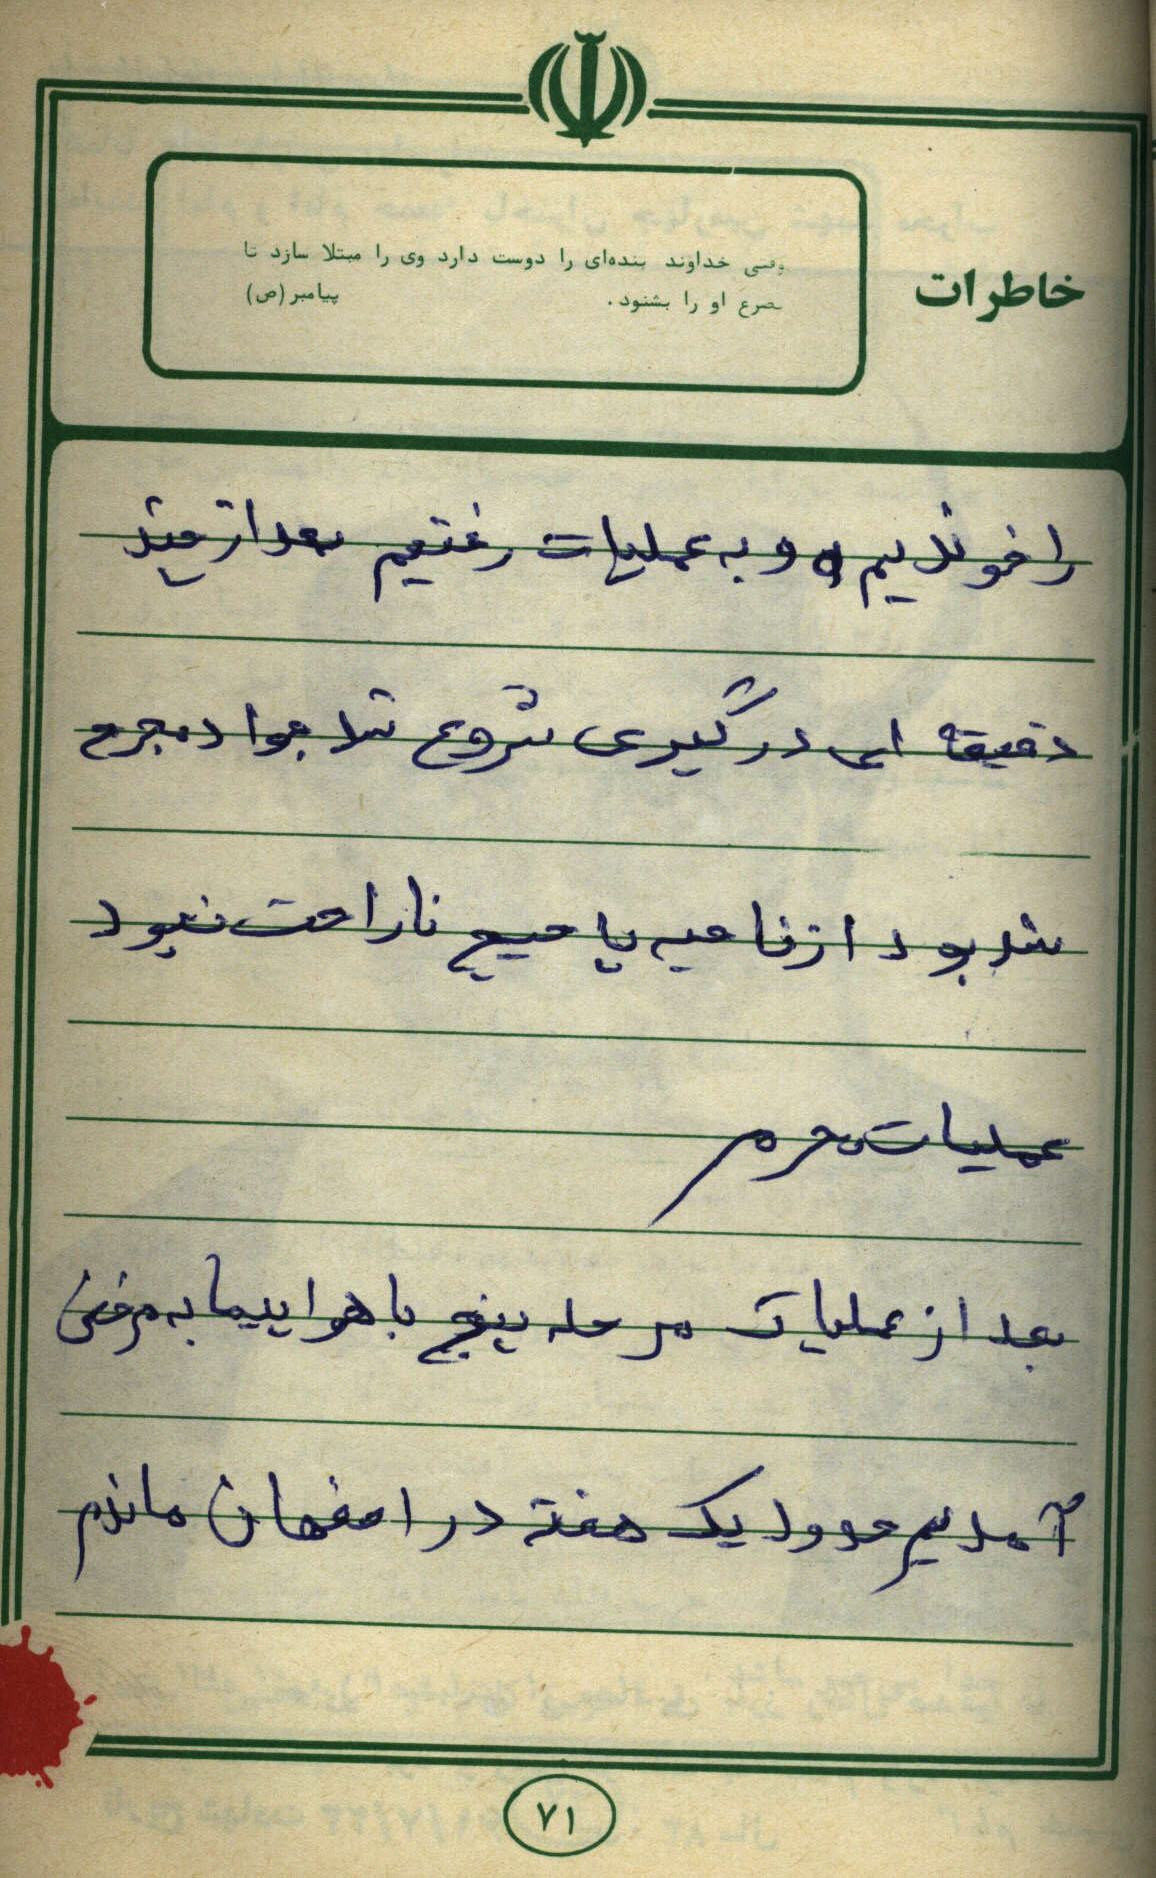 خاطرات
وقتی خداوند بنده‌ای را دوست دارد وی را مبتلا سازد تا
تضرع او را بشنود.
پیامبر(ص)
را خوندیم و و به عملیات رفتیم بعد از چند
دقیقه ای درگیری شروع شد جواد مجرح
شد بود از ناحیه پا هیچ ناراحت نبود
عملیات محرم
بعد از عملیات مرحله پنج با هواپیما به مرخصی
آمدیم حدود یک هفته در اصفهان ماندم
۷۱